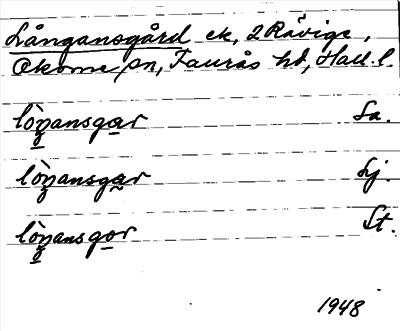 Långansgård ek, 2 Rävige,
Okome sn, Faurås hd, Hall. l.
lòŋansgar Sa.
lòŋansgar Lj.
lòŋansgor St.
1948